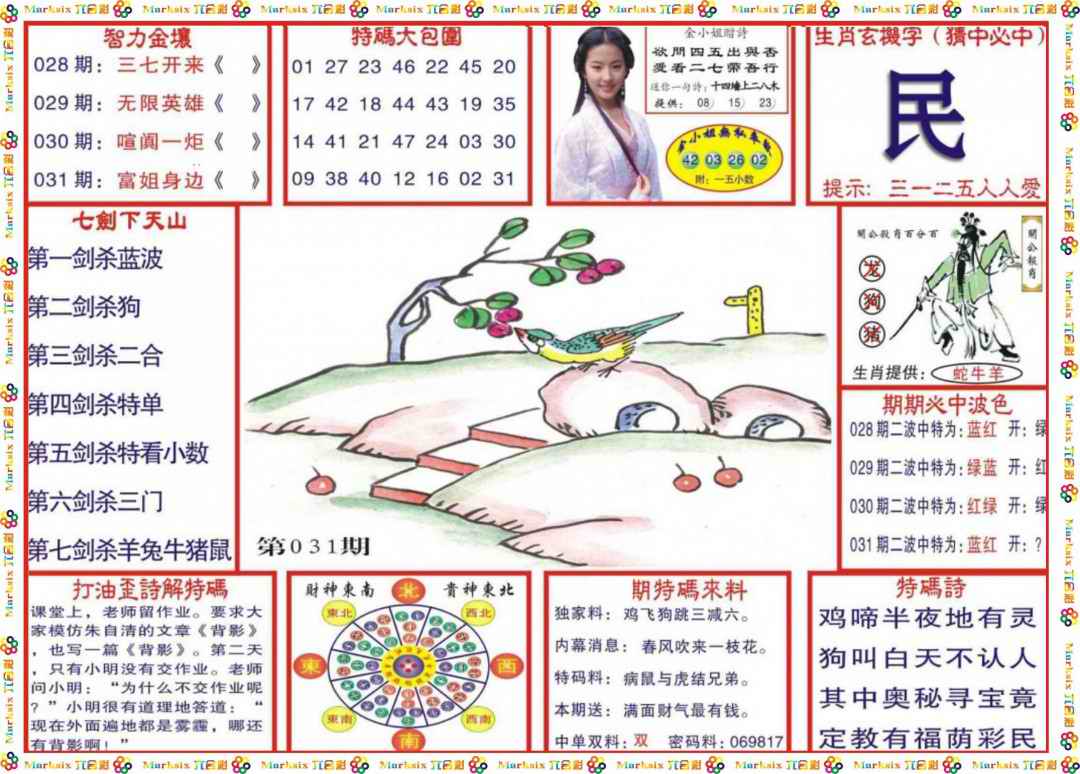 智力金壤
028期：三七开来《 》
029期：无限英雄《 》
030期：喧阗一炬《 》
031期：富姐身边《 》
特碼大包圍
01 27 23 46 22 45 20
17 42 18 44 43 19 35
14 41 21 47 24 03 30
09 38 40 12 16 02 31
金小姐贈詩
欲問四五出與否
愛看二七帶吾行
送你一句詩：十四墻上二八木
提供： 08） 15） 23）
金小姐無私奉
42 03 26 02
附：一五小数
生肖玄機字（猜中必中）
民
提示: 三一二五人人愛
七劍下天山
第一剑杀蓝波
第二剑杀狗
第三剑杀二合
第四剑杀特单
第五剑杀特看小数
第六剑杀三门
第七剑杀羊兔牛猪鼠
第031期
関公殺肖百分百
関公殺肖
龙
狗
猪
生肖提供：蛇牛羊
期期必中波色
028期二波中特为:蓝红 开:绿
029期二波中特为:绿蓝 开:红
030期二波中特为:红绿 开:绿
031期二波中特为:蓝红 开:？
打油歪詩解特碼
课堂上，老师留作业。要求大
家模仿朱自清的文章《背影》
，也写一篇《背影》。第二天
，只有小明没有交作业。老师
问小明：“为什么不交作业呢
？”小明很有道理地答道：“
现在外面遍地都是雾霾，哪还
有背影啊！”
財神東南 貴神東北
北
東北
西北
東
西
東南
西南
南
期特碼來料
独家料：鸡飞狗跳三减六。
内幕消息：春风吹来一枝花。
特码料：病鼠与虎结兄弟。
本期送：满面财气最有钱。
中单双料：双 密码料：069817
特碼詩
鸡啼半夜地有灵
狗叫白天不认人
其中奥秘寻宝竟
定教有福荫彩民